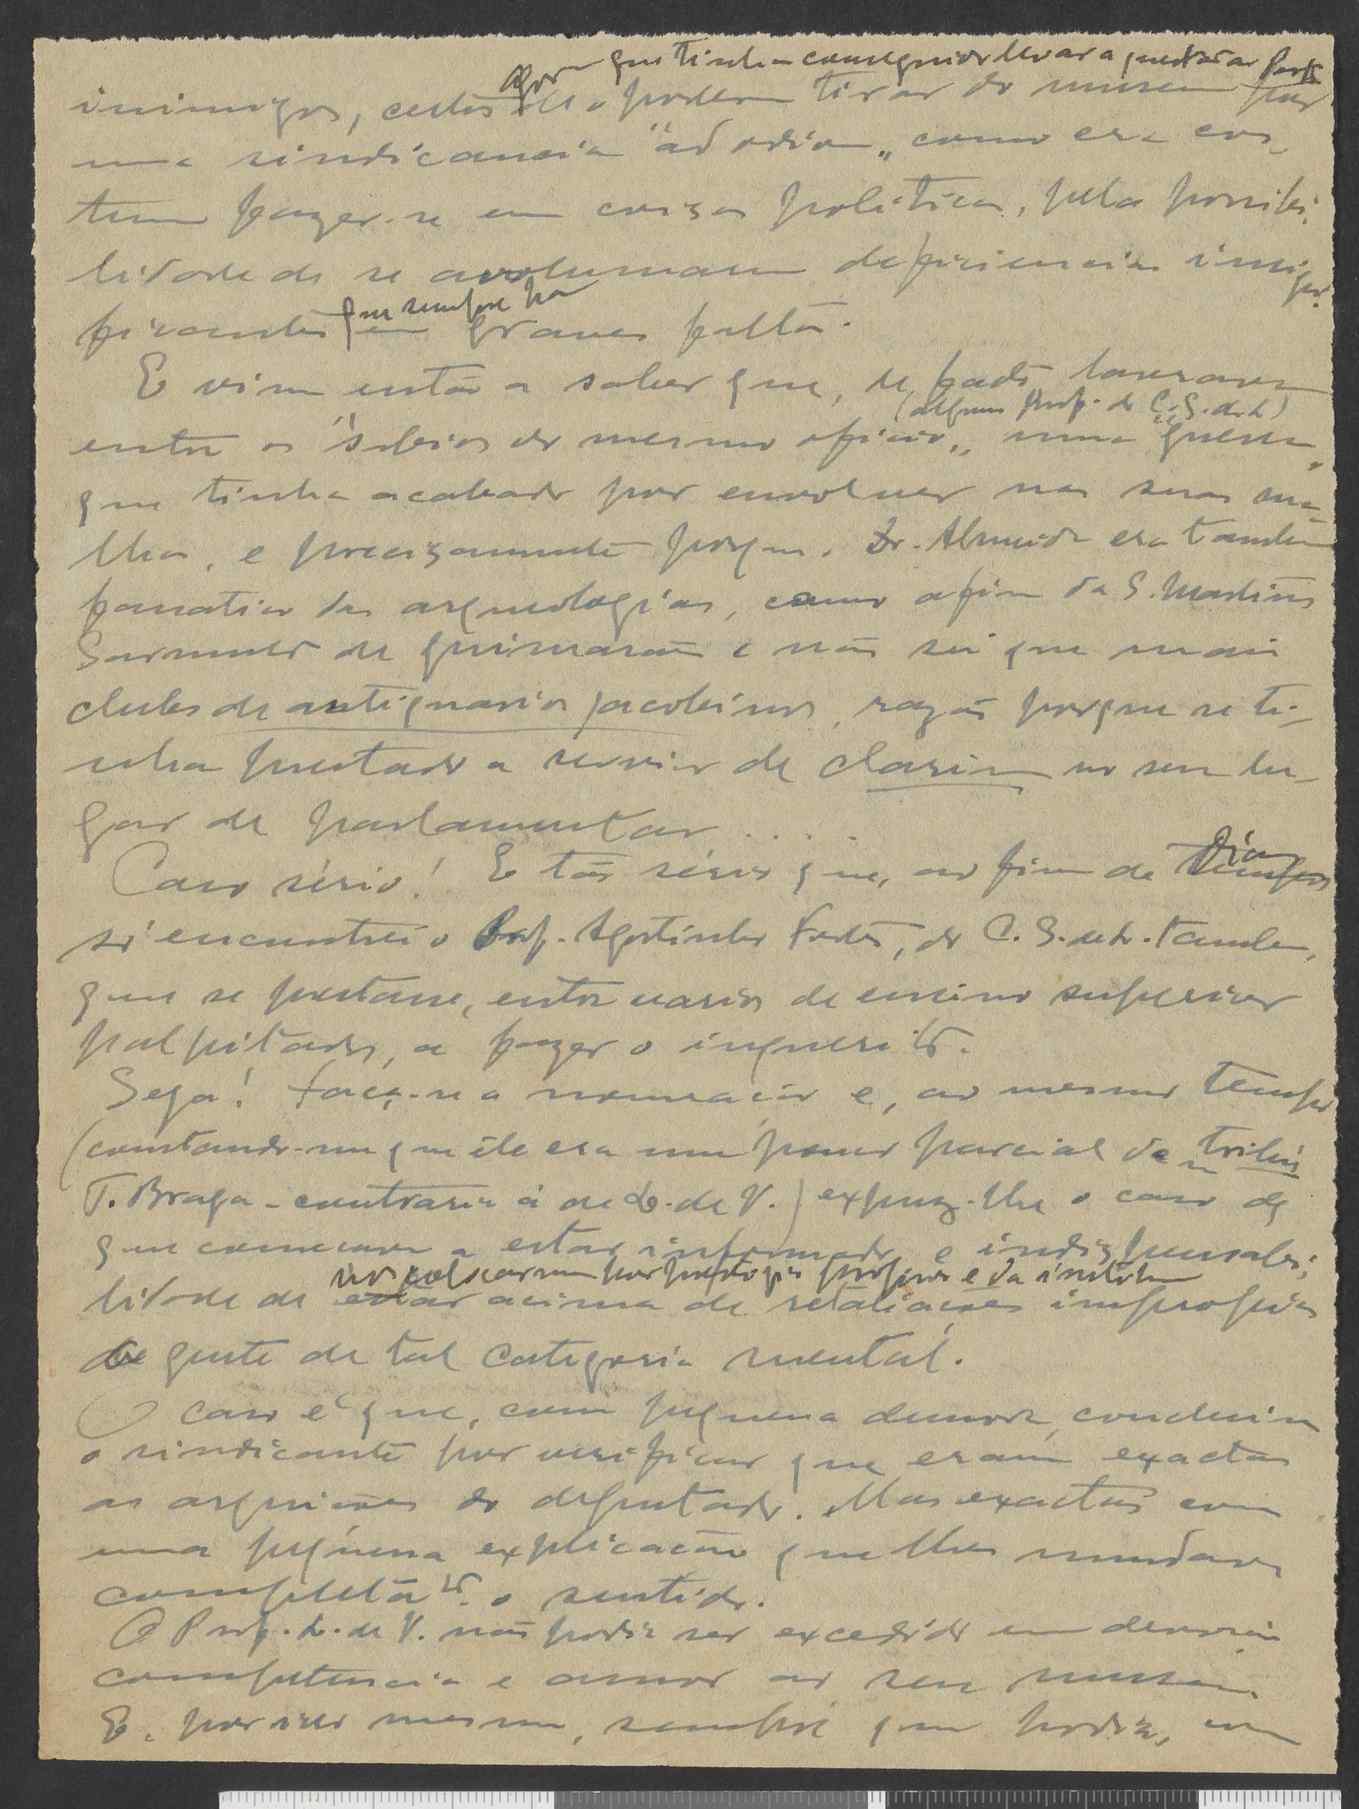 agora que tinham conseguido levar a questão ao Parl.
inimigos, certos de o poderem tirar do museu por
uma sindicancia "ad odium" como era cos-
tume fazer-se em coisas politicas, pela possibi-
lidade de se avolumarem deficiencias insigni-
ficantes que sempre ha em graves faltas.
E vim então a saber que, de facto, lavrava
(alguns prof. da C. S. de L.)
entre os "sabios do mesmo oficio", uma "guerra"
que tinha acabado por envolver nas suas ma-
lhas, e precizamente porque o Dr. Almeida era tambem
fanatico das arqueologias, como afim da S. Martins
Sarmento de Guimarães e não sei que mais
clubes de antiquarios jacobinos, razão porque se ti-
nha prestado a servir de clarim no seu lu-
gar de parlamentar . . . .
Caso sério! E tão sério que, ao fim de dias
só encontrei o Prof. Agostinho Fortes, da C. S. de L. tambem,
que se prestasse, entre varios de ensino superior
palpitados, a fazer o inquerito.
Seja! Faça-se a nomeação e, ao mesmo tempo
(constando-me que ele era um pouco parcial da tribu
T. Braga - contraria á de L. de V.) expuz-lhe o caso de
que começava a estar informado e indispensabi-
no colocarem por prestigio proprio e da instit.
lidade de acima de retaliações improprias
de gente de tal categoria mental.
O caso é que, com pequena demora, concluiu
o sindicante por verificar que eram exactas
as arguições do deputado. Mas exactas com
uma pequena explicação que lhes mudava
completamto. o sentido.
O Prof. L. de V. não podia ser excedido em devoção
competencia e amor ao seu museu.
E, por isso mesmo, sempre que podia, em